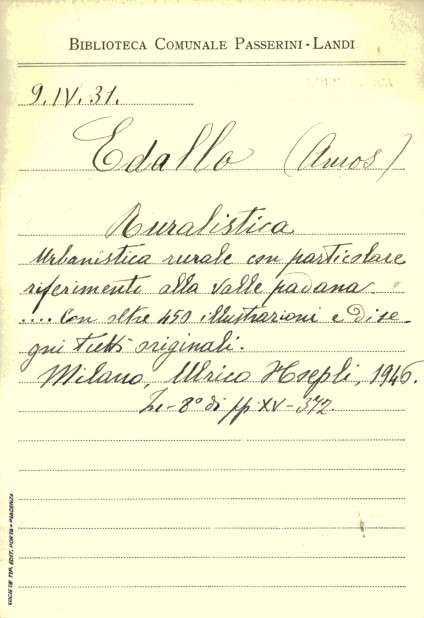 BIBLIOTECA COMUNALE PASSERINI-LANDI
9.IV.31.
Edallo (Amos)
Ruralistica
Urbanistica rurale con particolare
riferimento alla valle padana
.... Con oltre 450 illustrazioni e dise-
gni tutti originali.
Milano, Ulrico Hoepli, 1946.
in-8° di pp. XV-372.
SOCIETÀ TIP. EDIT. PORTA - PIACENZA